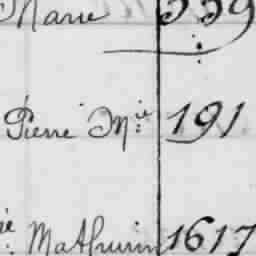 Marie 559
Pierre Mie 191
ie Mathurin 1617